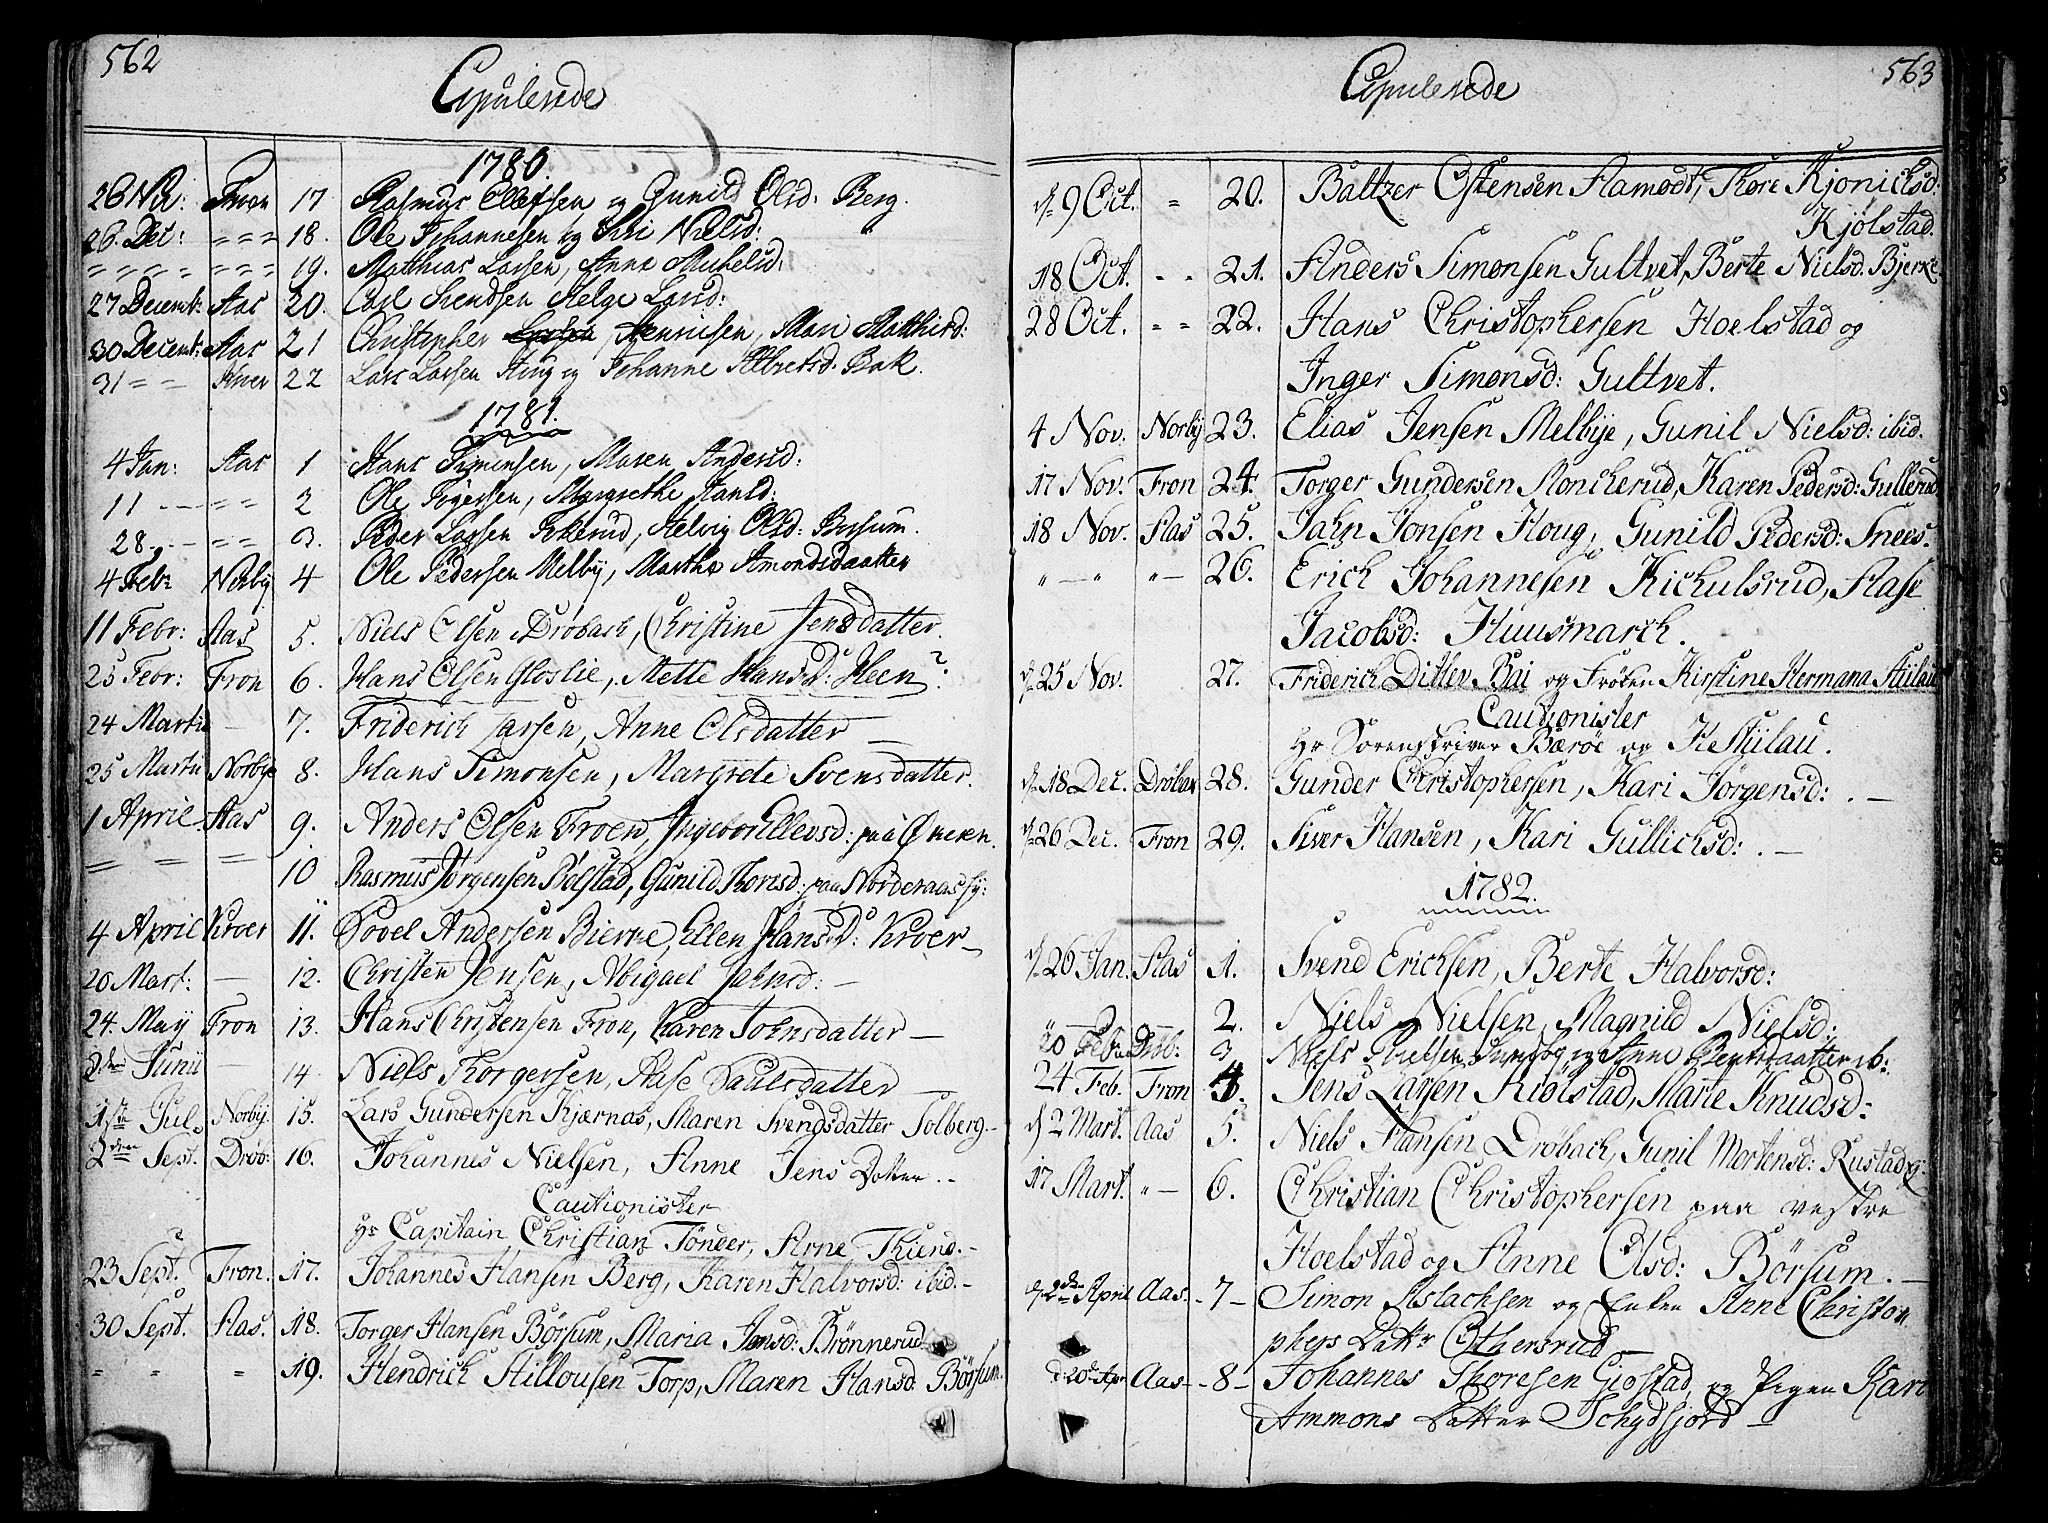 562
Copulerede
1780.
26 Nov: Fron 17 Rasmus Olefsen og Gunild Olsd: Berg.
26 Dec: = = = 18. Ole Johannesen og Siri Nielsd:
= = = = = = = 19. Matthias Larsen, Anne Michelsd:
27 Decemb: Aas 20. Carl Svendsen Helge Larsd:
30 Decemb: Aas 21 Christopher Henrichsen, Mari Matthisd:
31 = = Kroer 22 Lars Larsen Haug og Johanne Albretsd. Bak.
1781.
4 Jan: Aas 1 Hans Simensen, Maren Andersd:
11 - - = = 2 Ole Sigersen, Margrethe Hansd:
28 - - = = 3. Peder Larsen Ekkerud, Helvig Olsd: Børsum.
4 Febr Norby 4 Ole Pedersen Melby, Marthe Amondsdaatter
11 Febr: Aas 5. Niels Olsen Drøbach, Christine Jensdatter.
25 Febr: Fron 6. Hans Olsen Gloslie, Mette HansD: Heen?:
24 Martii - 7. Friderich Larsen, Anne Olsdatter —
25 Martii Norbye 8. Hans Simonsen, Margrete Svensdatter.
1 April. Aas 9. Anders Olsen Froen, Ingebor Ellevsd: paa Øneren.
= = = 10 Rasmus Jørgensen Bølstad, Gunild Thorisd: paa Norderaas Ej:
4 April Kroer 11. Povel Andersen Bierke, Ellen HansD: Kroer —
20 Mart: - 12. Christen Jensen, Abigael Jahnsd: —
24. May Fron 13. Hans Christensen Fron, Karen Johnsdatter —
2den Junii - 14. Niels Torgersen, Aase Paulsdatter —
1ste Jul. Norby. 15. Lars Gundersen Kjærnas, Maren Svendsdatter Solberg. -
2den Sept. Drøb: 16. Johannes Nielsen, Anne Jens Datter. -
Cautionister
Hr Capitain Christian Tønder, Arne Thiend. -
23 Sept. Fron. 17. Johannes Hansen Berg, Karen Halvorsd: ibid. -
30 Sept. Aas. 18. Torger Hansen Børsum, Maria Jensd: Brønnerud
" " " 19. Hendrich Hillousen Torp, Maren Hansd: Børsum.
563
Copulerede
d. 9 Oct. = 20. Baltzer Ostensen Aamodt, Thore Kjonichsd:
Kjølstad.
18 Oct. - - 21. Anders Simonsen Gultvet, Berte Nielsd. Bjerke
28 Oct. = = 22. Hans Christophersen Hoelstad og
Inger Simonsd: Gultvet.
4 Nov. Norby 23. Elias Jensen Melbye, Gunil Nielsd: ibid.
17 Nov. Fron 24. Torger Gundersen Moncherud, Karen Pedersd: Gullerud
18 Nov. Aas 25. Jahn Jonsen Houg, Gunild Pedersd: Snees.
" — " " — 26. Erich Johannesen Kichulsrud, Aase
Jacobsd: Huusmarch.
d. 25 Nov. 27. Friderich Ditlev Bai og Frøken Kirstine Hermana Stülau
Cautionister
Hr Sorenskriver Bærøe og Hr Stülau.
d. 18 Dec. Drøbak 28. Gunder Christophersen, Kari Jørgensd: . —
d. 26 Dec. Fron 29. Siver Hansen, Kari Gullichsd: . —
1782.
d. 26 Jan. Aas 1. Svend Erichsen, Berte Halvorsd:
" — — 2. Niels Nielsen, Magnild Nielsd:
20 Feb: Drøb: 3 Niels Poulsen og Anne Bentsdaatter ib:
24 Feb. Fron 4. Jens Larsen Kiølstad, Marte Knudsd:
d. 2 Mart. Aas 5. Niels Hansen Drøbach, Gunil Mortensd: Rustad ej:
17 Mart. " — 6. Christian Christophersen paa vestre
Hoelstad og Anne Olsd: Børsum. —
d. 2den April Aas. - 7 - Simon Aslachsen og Enken Anne Christo
phers Dattr Othersrud
d: 20de Apr Aas - 8 - Johannes Thoresen Giøstad og Pigen Kari
Ammons Datter Schydsjord —